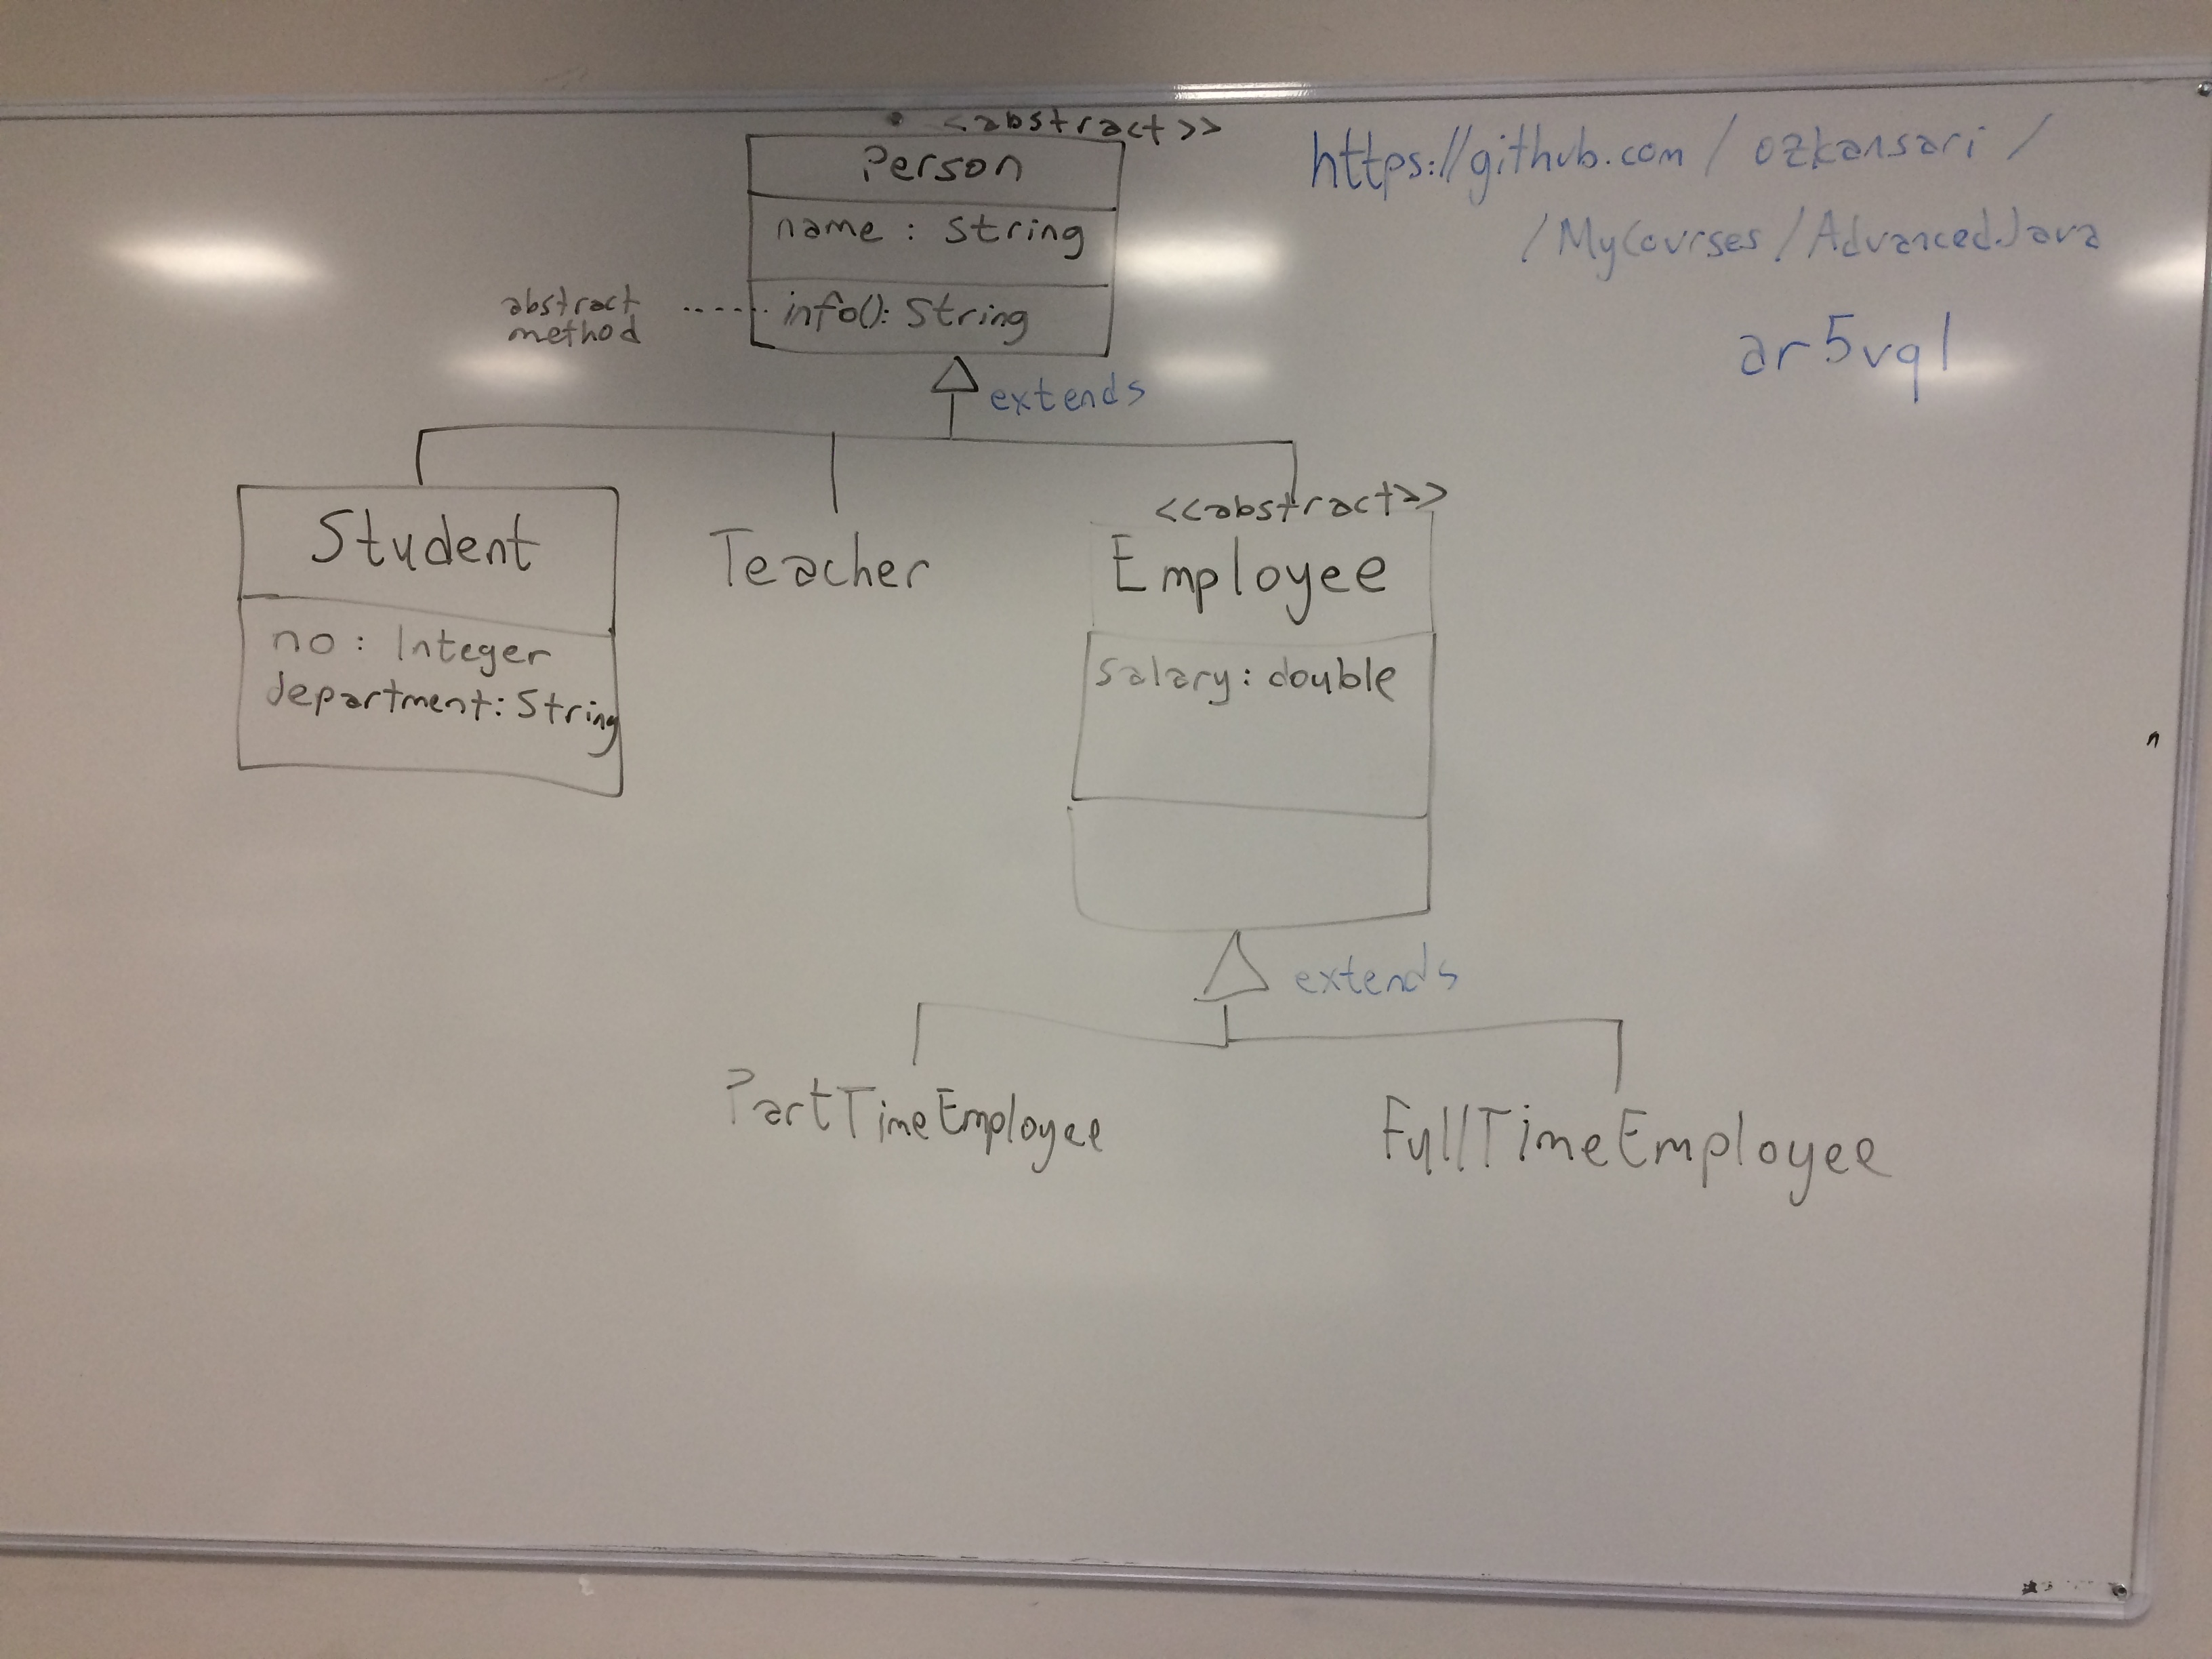 <abstract>>
Person
name : String
abstract
method
info(): String
extends
https://github.com / ozkansari /
/MyCourses /AdvancedJava
ar5vq1
Student
no : Integer
department: String
Teacher
<<abstract>>
Employee
salary: double
extends
PartTimeEmployee
FullTimeEmployee